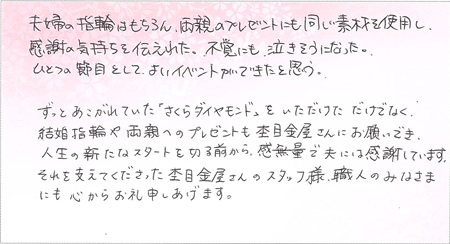 夫婦の指輪はもちろん、両親のプレゼントにも同じ素材を使用し、
感謝の気持ちを伝えれた。不覚にも、泣きそうになった。
ひとつの節目として、よいイベントができたと思う。
ずっとあこがれていた「さくらダイヤモンド」をいただけただけでなく、
結婚指輪や両親へのプレゼントも杢目金屋さんにお願いでき、
人生の新たなスタートを切る前から、感無量で夫には感謝しています。
それを支えてくださった杢目金屋さんのスタッフ様、職人のみなさま
にも心からお礼申しあげます。